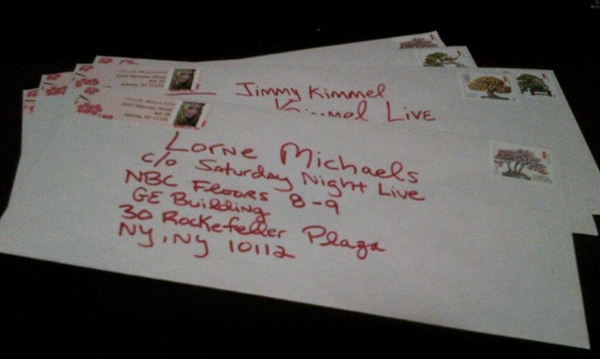 Jimmy Kimmel
Kimmel Live
Lorne Michaels
c/o Saturday Night Live
NBC Floors 8-9
GE Building
30 Rockefeller Plaza
NY, NY 10112